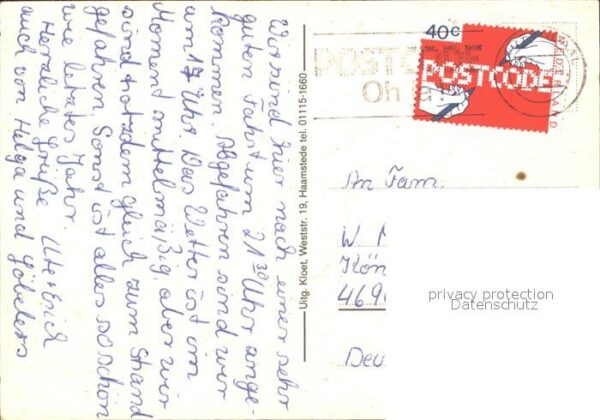 Wir sind hier nach einer sehr
guten Fahrt um 21³⁰ Uhr ange-
kommen. Abgefahren sind wir
am 17 Uhr. Das Wetter ist im
Moment mittelmäßig, aber wir
sind trotzdem gleich zum Strand
gefahren. Sonst ist alles so schön
wie letztes Jahr.
Herzliche Grüße Ute + Erich
auch von Helga und
Uitg. Kloet, Weststr. 19, Haamstede tel. 01115-1660
40c
POSTCODE
POSTCODE
Oh
NEDERLAND
An Fam.
W
Kön
469
Deu
privacy protection
Datenschutz